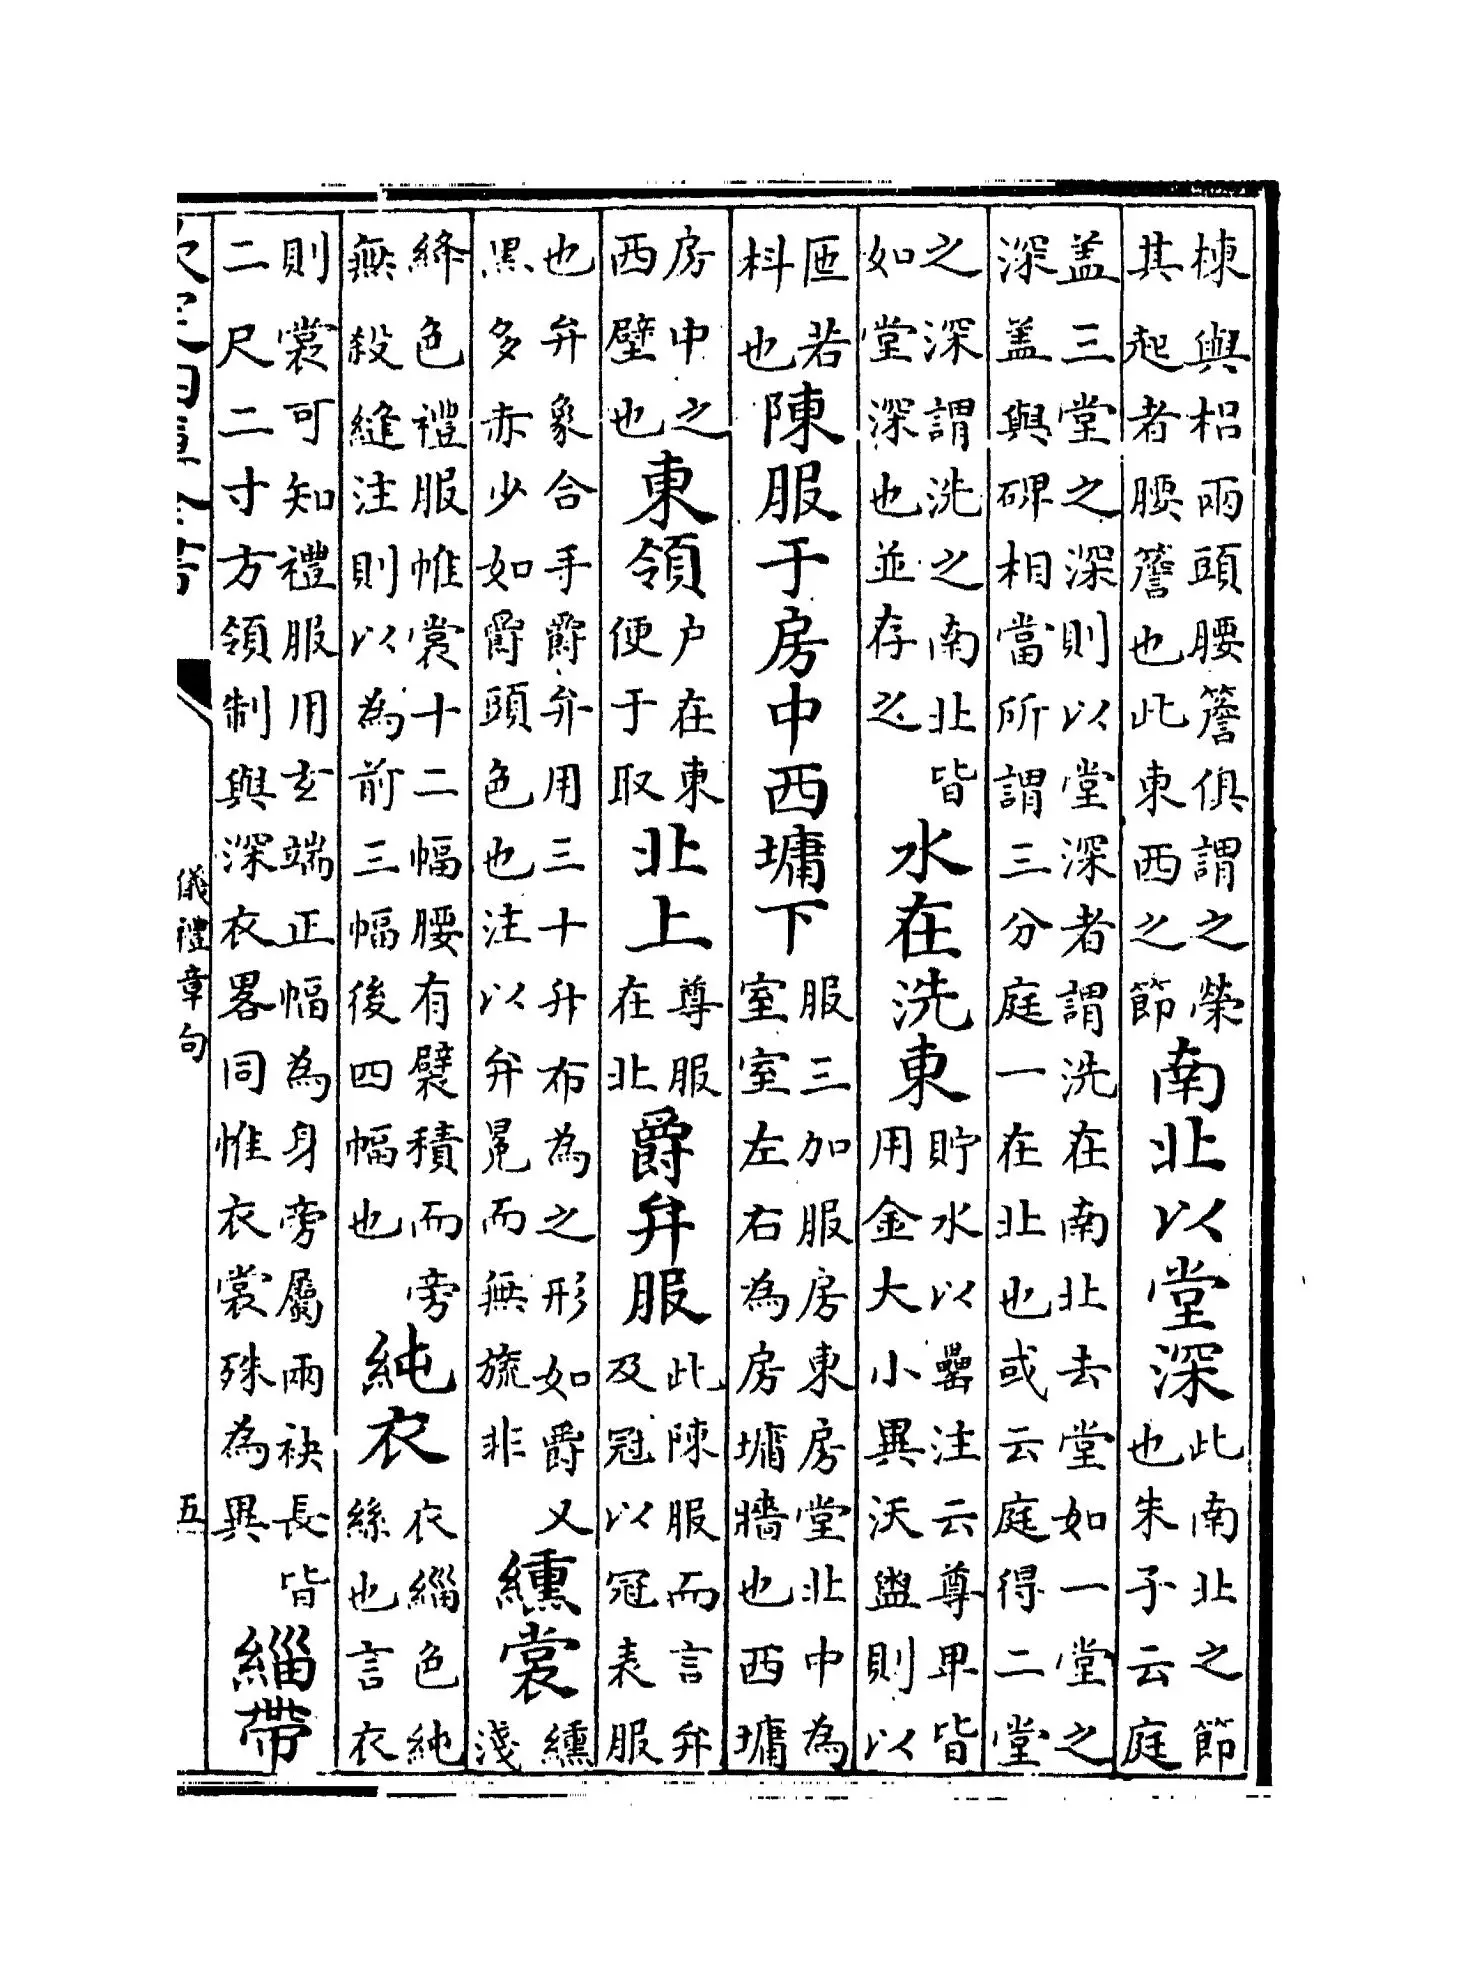 棟與梠兩頭腰簷俱謂之榮其起者腰簷也此東西之節南北以堂深此南北之節也朱子云庭
盖三堂之深則以堂深者謂洗在南北去堂如一堂之深盖與碑相當所謂三分庭一在北也或云庭得二堂
之深謂洗之南北皆如堂深也並存之水在洗東貯水以罍注云尊卑皆用金大小異沃盥則以
匜若枓也陳服于房中西墉下服三加服房東房堂北中為室室左右為房墉牆也西墉
房中之西壁也東領户在東便于取北上尊服在北爵弁服此陳服而言弁及冠以冠表服
也弁象合手爵弁用三十升布為之形如爵又黒多赤少如爵頭色也注以弁冕而無旒非纁裳纁淺
絳色禮服帷裳十二幅腰有襞積而旁無殺縫注則以為前三幅後四幅也純衣衣緇色純絲也言衣
則裳可知禮服用玄端正幅為身旁屬兩袂長皆二尺二寸方領制與深衣畧同惟衣裳殊為異緇帶
欽定四庫全書
儀禮章句
五